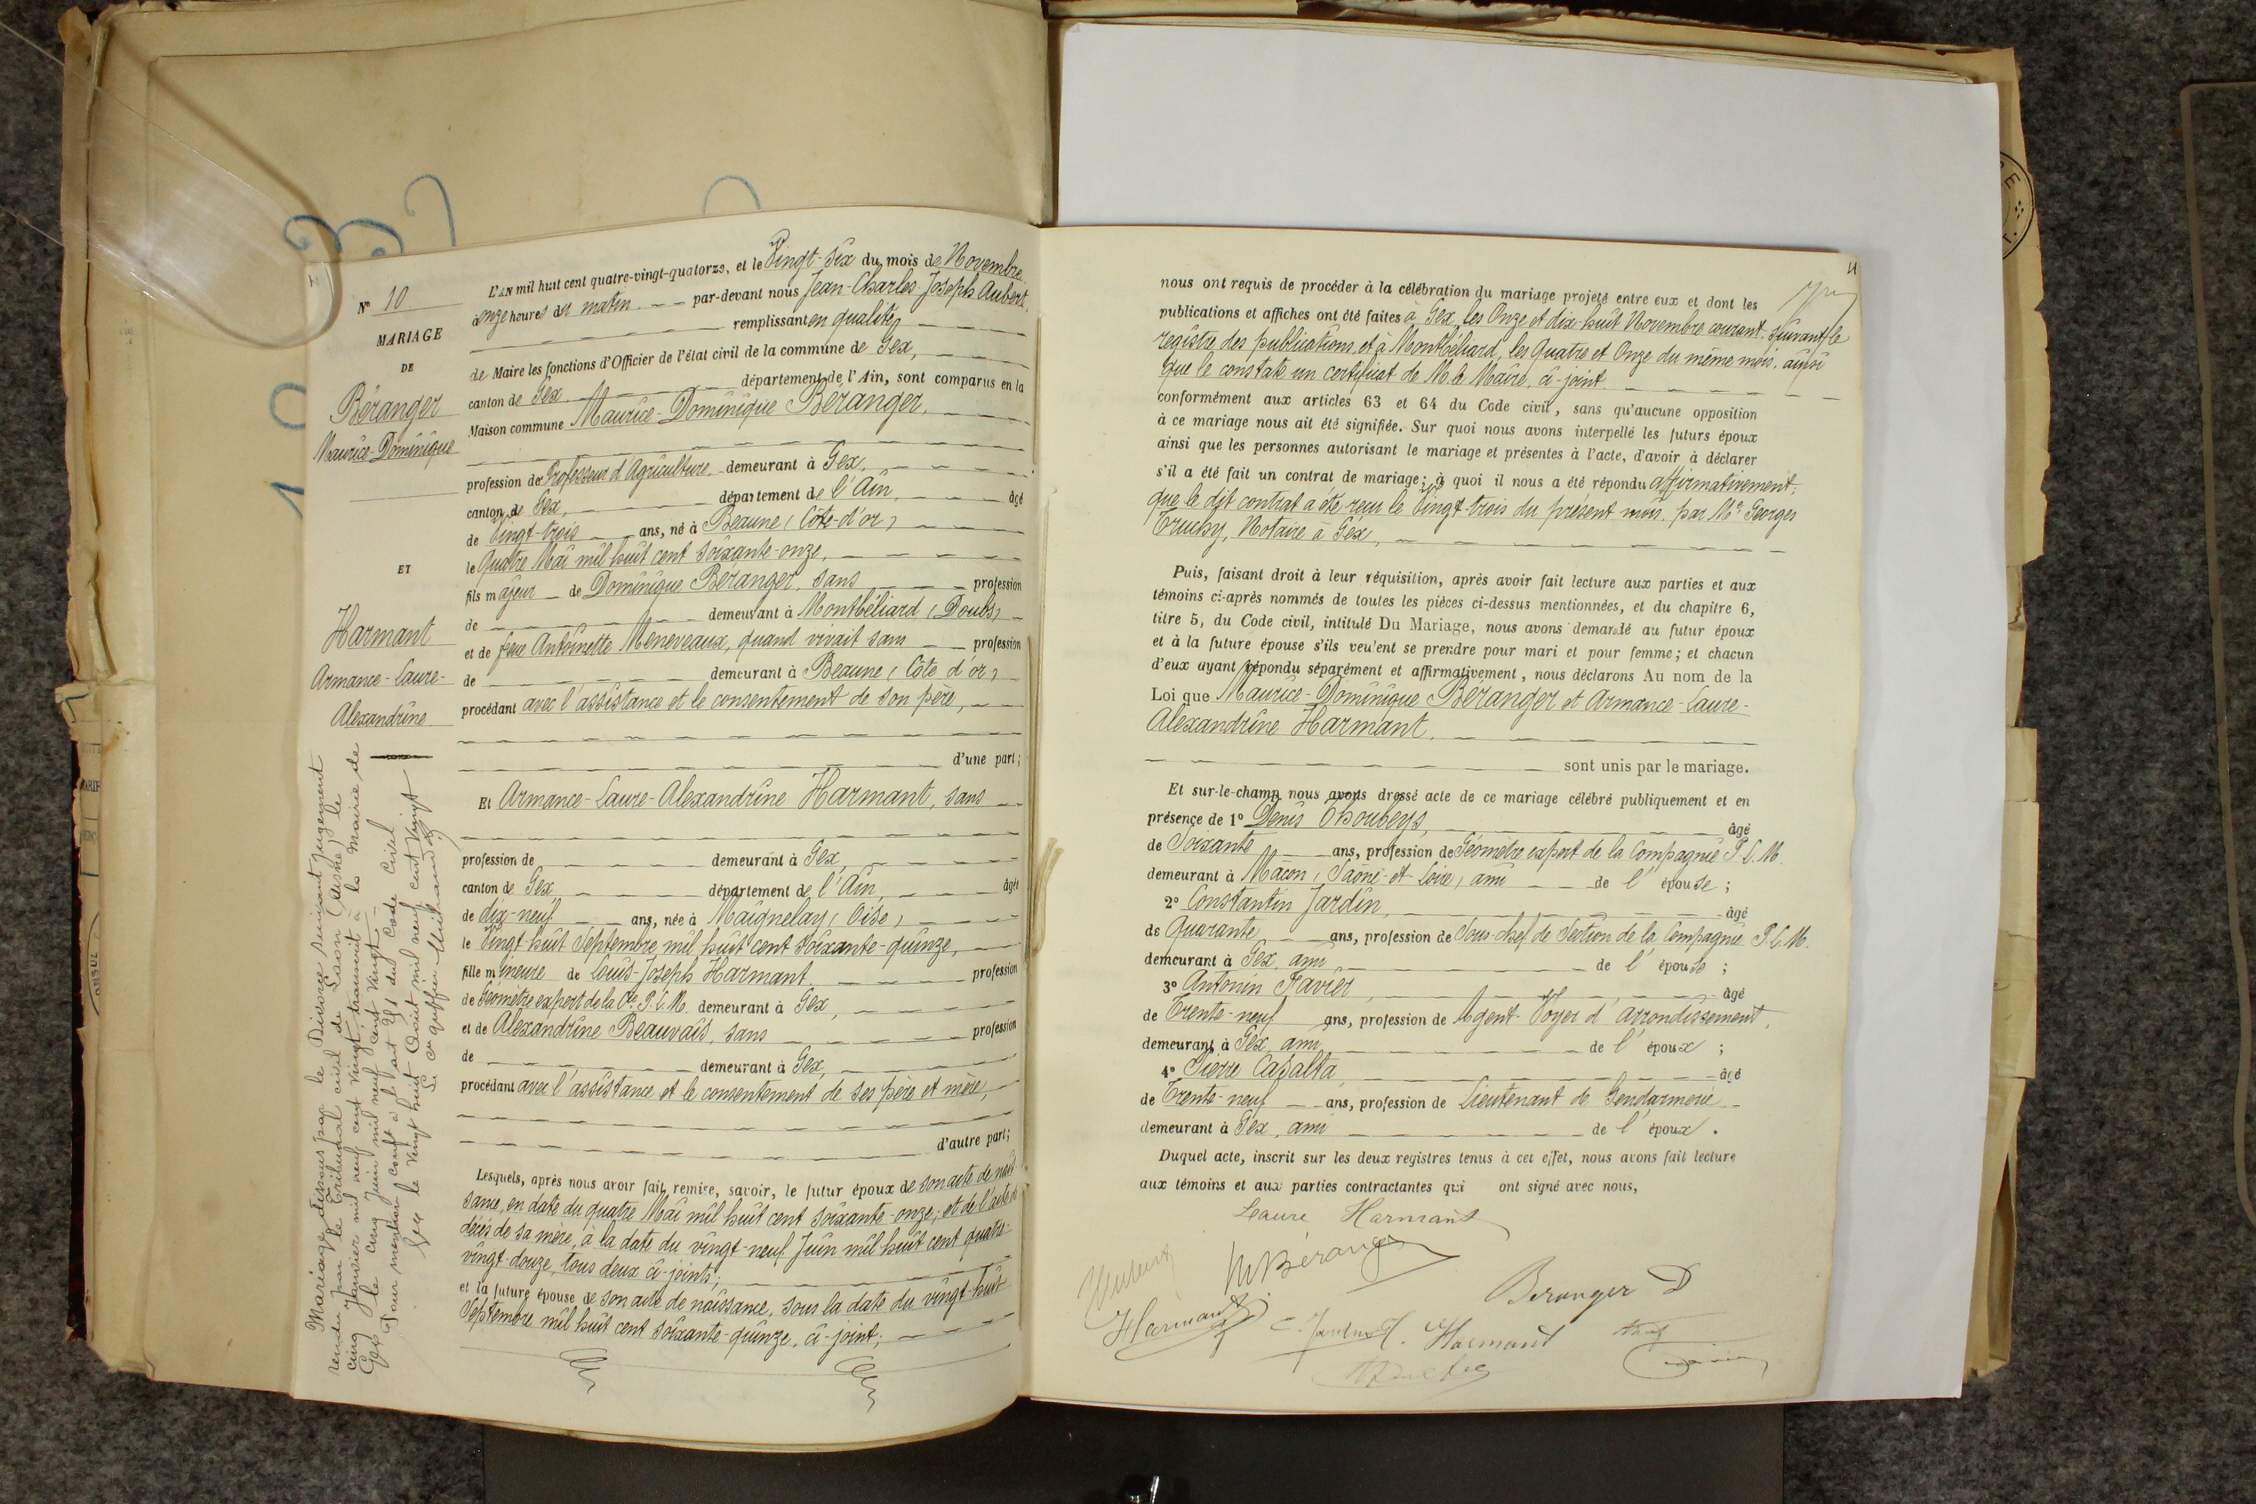 N° 10
MARIAGE
DE
Béranger
Maurice-Dominique
ET
Harmant
Armance-Laure-
Alexandrine
Mariage dissous par le Divorce suivant jugement
rendu par le Tribunal civil de Laon (Aisne) le
cinq Janvier mil neuf cent vingt, transcrit à la Mairie de
Gex le cinq Juin mil neuf cent vingt.
Pour mention conft à l'art 251 du Code Civil
Gex le vingt huit Août mil neuf cent vingt
Le Greffier
L'AN mil huit cent quatre-vingt-quatorze, et le Vingt-six du mois de Novembre
à onze heures du matin par-devant nous Jean-Charles-Joseph Aubert,
remplissant en qualité
de Maire les fonctions d'Officier de l'état civil de la commune de Gex,
canton de Gex département de l'Ain, sont comparus en la
Maison commune Maurice-Dominique Béranger,
profession de Professeur d'Agriculture demeurant à Gex,
canton de Gex, département de l'Ain, âgé
de Vingt-trois ans, né à Beaune (Côte-d'or)
le Quatre Mai mil huit cent soixante-onze,
fils majeur de Dominique Béranger, sans profession
de demeurant à Montbéliard (Doubs)
et de feue Antoinette Meneveaux, quand vivait sans profession
de demeurant à Beaune (Côte d'or)
procédant avec l'assistance et le consentement de son père,
d'une part;
Et Armance-Laure-Alexandrine Harmant, sans
profession de demeurant à Gex,
canton de Gex, département de l'Ain, âgée
de dix-neuf ans, née à Maignelay (Oise)
le Vingt-huit Septembre mil huit cent soixante-quinze,
fille mineure de Louis-Joseph Harmant profession
de Géomètre expert de la Cie P. L. M. demeurant à Gex,
et de Alexandrine Beauvais, sans profession
de demeurant à Gex,
procédant avec l'assistance et le consentement de ses père et mère,
d'autre part;
Lesquels, après nous avoir fait remise, savoir, le futur époux de son acte de nais
sance, en date du quatre Mai mil huit cent soixante-onze; et de l'acte de
décès de sa mère, à la date du vingt-neuf Juin mil huit cent quatre-
vingt-douze, tous deux ci-joints;
et la future épouse de son acte de naissance, sous la date du vingt-huit
Septembre mil huit cent soixante-quinze, ci-joint;
nous ont requis de procéder à la célébration du mariage projeté entre eux et dont les
publications et affiches ont été faites à Gex, les Onze et dix-huit Novembre courant. suivant le
registre des publications, et à Montbéliard, les Quatre et Onze du même mois. ainsi
que le constate un certificat de M. le Maire, ci-joint
conformément aux articles 63 et 64 du Code civil, sans qu'aucune opposition
à ce mariage nous ait été signifiée. Sur quoi nous avons interpellé les futurs époux
ainsi que les personnes autorisant le mariage et présentes à l'acte, d'avoir à déclarer
s'il a été fait un contrat de mariage; à quoi il nous a été répondu affirmativement;
que le dit contrat a été reçu le Vingt-trois du présent mois, par Me Georges
Truchy, Notaire à Gex,
Puis, faisant droit à leur réquisition, après avoir fait lecture aux parties et aux
témoins ci-après nommés de toutes les pièces ci-dessus mentionnées, et du chapitre 6,
titre 5, du Code civil, intitulé Du Mariage, nous avons demandé au futur époux
et à la future épouse s'ils veulent se prendre pour mari et pour femme; et chacun
d'eux ayant répondu séparément et affirmativement, nous déclarons Au nom de la
Loi que Maurice-Dominique Béranger et Armance-Laure-
Alexandrine Harmant.
sont unis par le mariage.
Et sur-le-champ nous avons dressé acte de ce mariage célébré publiquement et en
présence de 1° Denis Choubeys, âgé
de Soixante ans, profession de Géomètre expert de la Compagnie P. L. M.
demeurant à Mâcon (Saône-et-Loire) ami de l'épouse;
2° Constantin Jardin, âgé
de Quarante ans, profession de Sous-chef de Section de la Compagnie P. L. M.
demeurant à Gex, ami de l'épouse;
3° Antonin Favier, âgé
de Trente-neuf ans, profession de Agent-Voyer d'arrondissement,
demeurant à Gex, ami de l'époux;
4° Pierre Casalta, âgé
de Trente-neuf ans, profession de Lieutenant de Gendarmerie
demeurant à Gex, ami de l'époux.
Duquel acte, inscrit sur les deux registres tenus à cet effet, nous avons fait lecture
aux témoins et aux parties contractantes qui ont signé avec nous,
Laure Harmant
M Béranger
Beranger D
Harmant
C. Jardin
A. Harmant